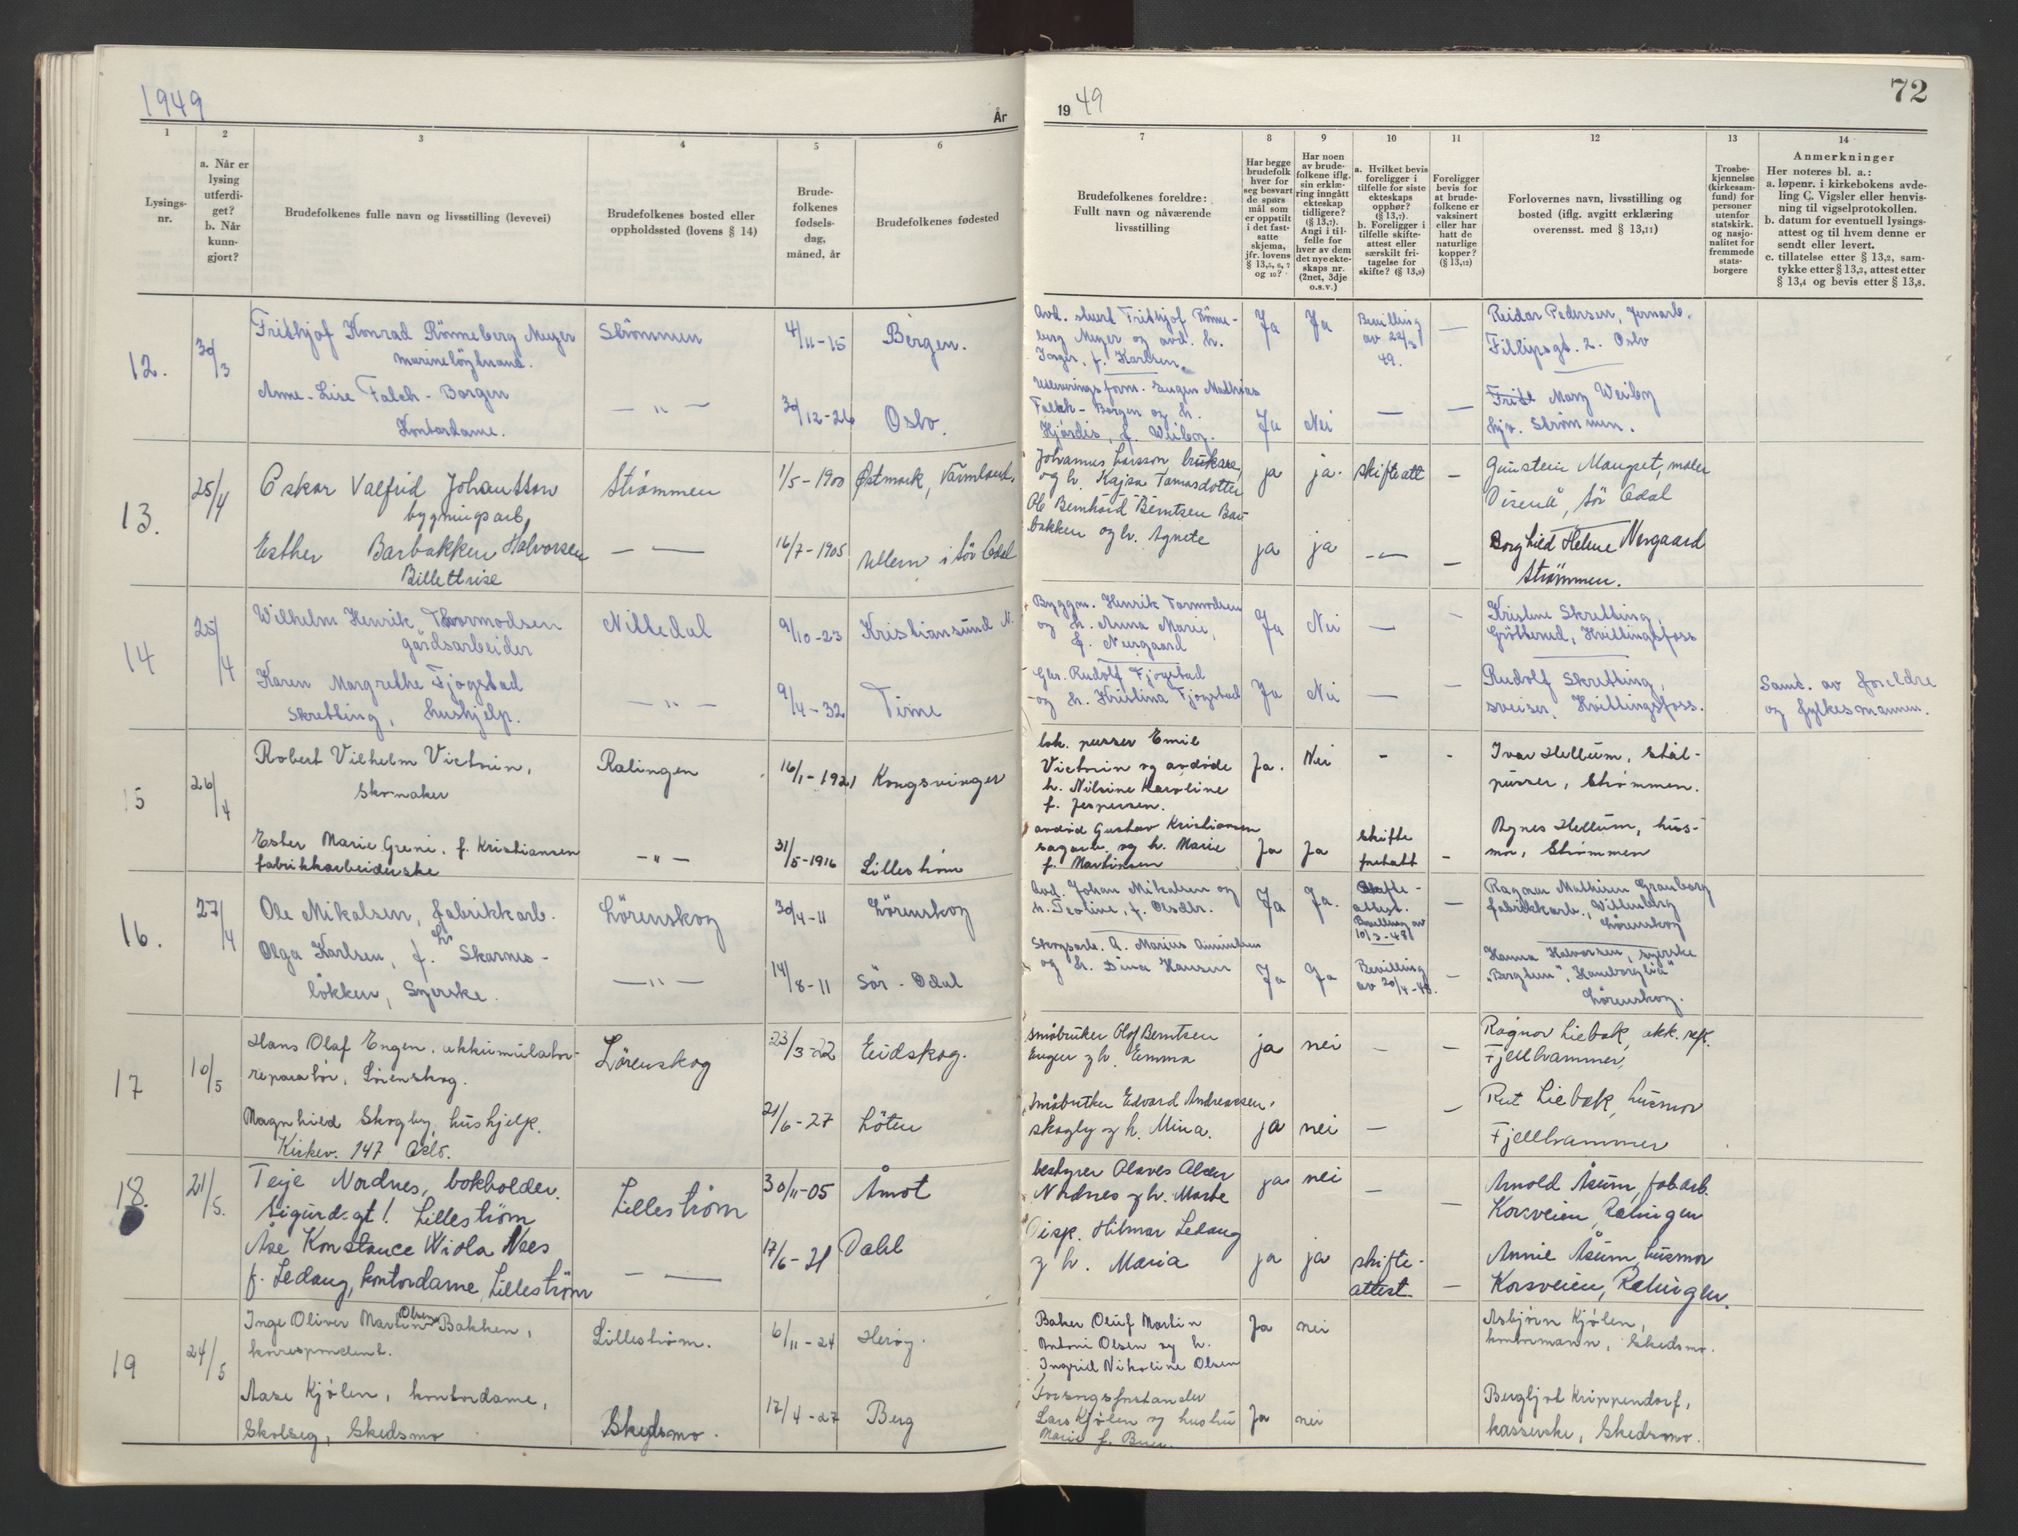 1949
År
1
2
3
4
5
6
Lysings-
nr.
a. Når er
lysing
utferdi-
get?
b. Når
kunn-
gjort?
Brudefolkenes fulle navn og livsstilling (levevei)
Brudefolkenes bosted eller
oppholdssted (lovens § 14)
Brude-
folkenes
fødsels-
dag,
måned, år
Brudefolkenes fødested
12.
30/3
Frithjof Konrad Rönneberg Meyer
marinelöytnant.
Strömmen
4/11-15
Bergen.
Anne-Lise Falch-Borgen
Kontordame.
— " —
30/12-26
Oslo.
13.
25/4
Oskar Valfrid Johansson
bygningsarb,
Strømmen
1/5-1900
Østmark, Värmland.
Esther Barbakken Halvorsen
Billettrise
— —
16/7-1905
Ullern i Sör Odal
14
25/4
Wilhelm Henrik Thormodsen
gårdsarbeider
Nittedal
9/10-23
Kristiansund N.
Karen Margrethe Fjogstad
Skretting, hushjelp.
— " —
9/4-32
Time
15
26/4
Robert Vilhelm Victrin,
Skomaker
Ralingen
16/1-1921
Kongsvinger
Ester Marie Greni. f. Kristiansen
fabrikkarbeiderske
— " —
31/5-1916
Lillestrøm
16.
27/4
Ole Mikalsen, fabrikkarb.
Lörenskog
30/4-11
Lörenskog
Olga Karlsen, f. Skarnes-
lökken, Syerske.
— " —
14/8-11
Sör-Odal
17
10/5
Hans Olaf Engen, akkumulator-
reparatör, Lörenskog.
Lörenskog
23/3-22
Eidskog.
Magnhild Skogby, hushjelp.
Kirkev. 147, Oslo.
21/6-27
Löten
18.
21/5.
Teje Nordnes, bokholder.
Sigurdsgt 1. Lillestrøm
Lillestrøm
30/11-05
Åmot
Åse Konstance Wiola Næs
f. Ledang, kontordame, Lillestrøm
— —
17/6-21
Dahl
19
24/5
Inge Oliver Martin Olsen Bakken,
korrespondent.
Lillestrøm.
6/11-24
Herøy.
Aase Kjølen, kontordame,
Skolseg, Skedsmo
Skedsmo.
17/4-27
Berg
1949
72
7
8
9
10
11
12
13
14
Brudefolkenes foreldre:
Fullt navn og nåværende
livsstilling
Har begge
brudefolk
hver for
seg besvart
de spørs
mål som
er oppstilt
i det fast-
satte
skjema,
jfr. lovens
§ 13,5, 6, 7
og 10?
Har noen
av brude-
folkene iflg.
sin erklæ-
ring inngått
ekteskap
tidligere?
(§ 13,7).
Angi i til-
felle for
hver av dem
det nye ekte-
skaps nr.
(2net, 3dje
o.s.v.)
a. Hvilket bevis
foreligger i
tilfelle for siste
ekteskaps
opphør?
(§ 13,7).
b. Foreligger i
tilfelle skifte-
attest eller
særskilt fri-
tagelse for
skifte? (§ 13,9)
Foreligger
bevis for
at brude-
folkene er
vaksinert
eller har
hatt de
naturlige
kopper?
(§ 13,12)
Forlovernes navn, livsstilling og
bosted (iflg. avgitt erklæring
overensst. med § 13,11)
Trosbe-
kjennelse
(kirkesam-
fund) for
personer
utenfor
statskirk.
og nasjo-
nalitet for
fremmede
stats-
borgere
Anmerkninger
Her noteres bl. a.:
a. løpenr. i kirkebokens avde-
ling C. Vigsler eller henvis-
ning til vigselprotokollen.
b. datum for eventuell lysings-
attest og til hvem denne er
sendt eller levert.
c. tillatelse etter § 13,2, sam-
tykke etter § 13,3, attest etter
§ 13,4 og bevis etter § 13,8.
Avd. stuert Frithjof Rönne-
berg Meyer og avd. h.
Inger, f. Karlsen.
Ja
Ja
Bevilling
av 22/3
49.
—
Reidar Pedersen, Jernarb.
Fillipsgt. 2. Oslo
Utleveringsform. Eugen Mathias
Falch-Borgen og h.
Hjördis, f. Weiby.
Ja
Nei
—
—
Mary Weiby
hjv. Strömmen.
Johannes Larsson brukare,
og h. Kajsa Tomasdotter
ja
ja.
skifteatt
—
Gunstein Maugset, maler
Disenå, Sör Odal
Ole Bernhard Berntsen Bar-
bakken og h. Agnete
ja
ja
—
—
Borghild Helene Nergaard
Strømmen.
Byggm. Henrik Tormodsen
og h. Anna Marie,
f. Neergaard
Ja
Nei
—
—
Kristine Skretting,
Grötterud, Hvittingsfoss
Gbr. Rudolf Fjogstad
og h. Kristina Fjogstad
Ja
Nei
—
—
Rudolf Skretting,
sveiser, Hvittingsfoss.
Samt. av foreldre
og fylkesmannen.
lok. pusser Emil
Victrin og avdøde
h. Nilsine Karoline
f. Jespersen.
Ja.
Nei
-
-
Ivar Hellum, stål-
pusser, Strømmen.
avdød Gustav Kristiansen
sagarb. og h. Marie
f. Martinsen
Ja
Ja
skifte
-
Agnes Hellum, hus-
mor, Strømmen
Avd. Johan Mikalsen og
h. Teoline, f. Olsdtr.
Ja
Ja.
Skifte-
attest.
Bevilling av
10/3-48
—
Ragnar Mathisen Granborg
fabrikkarb., Wittenberg
Lörenskog
Skogsarb. A. Marius Amundsen
og h. Dina Hansen
Ja
Ja
Bevilling
av 20/4-48.
—
Hanna Halvorsen, syerske
"Borgtun", Hanaborglia
Lörenskog.
småbruker Olof Berntsen
Engen og h. Emma
ja
nei
—
—
Ragnor Liebak, akk. rep.
Fjellhammer,
Småbruker Edvard Andreassen,
Skogby og h. Mina.
ja
nei
—
—
Rut Liebak, husmor
Fjellhammer
bestyrer Olaves Alder
Nordnes og h. Marte
ja
nei
—
—
Arnold Åsum, fabarb.
Korsveien, Rælingen
Disp. Hilmar Ledang
og h. Maria
ja
ja
skifte-
attest
—
Annie Åsum, husmor
Korsveien, Rælingen.
Baker Oluf Martin
Antoni Olsen og h.
Ingrid Nikoline Olsen
Ja
nei
Asbjørn Kjølen,
kontormann, Skedsmo.
Forsorgsforstander
Lars Kjölen og hustru
Marie f. Buer.
Ja
nei
Bergljot Krippendorf,
kasserske, Skedsmo.